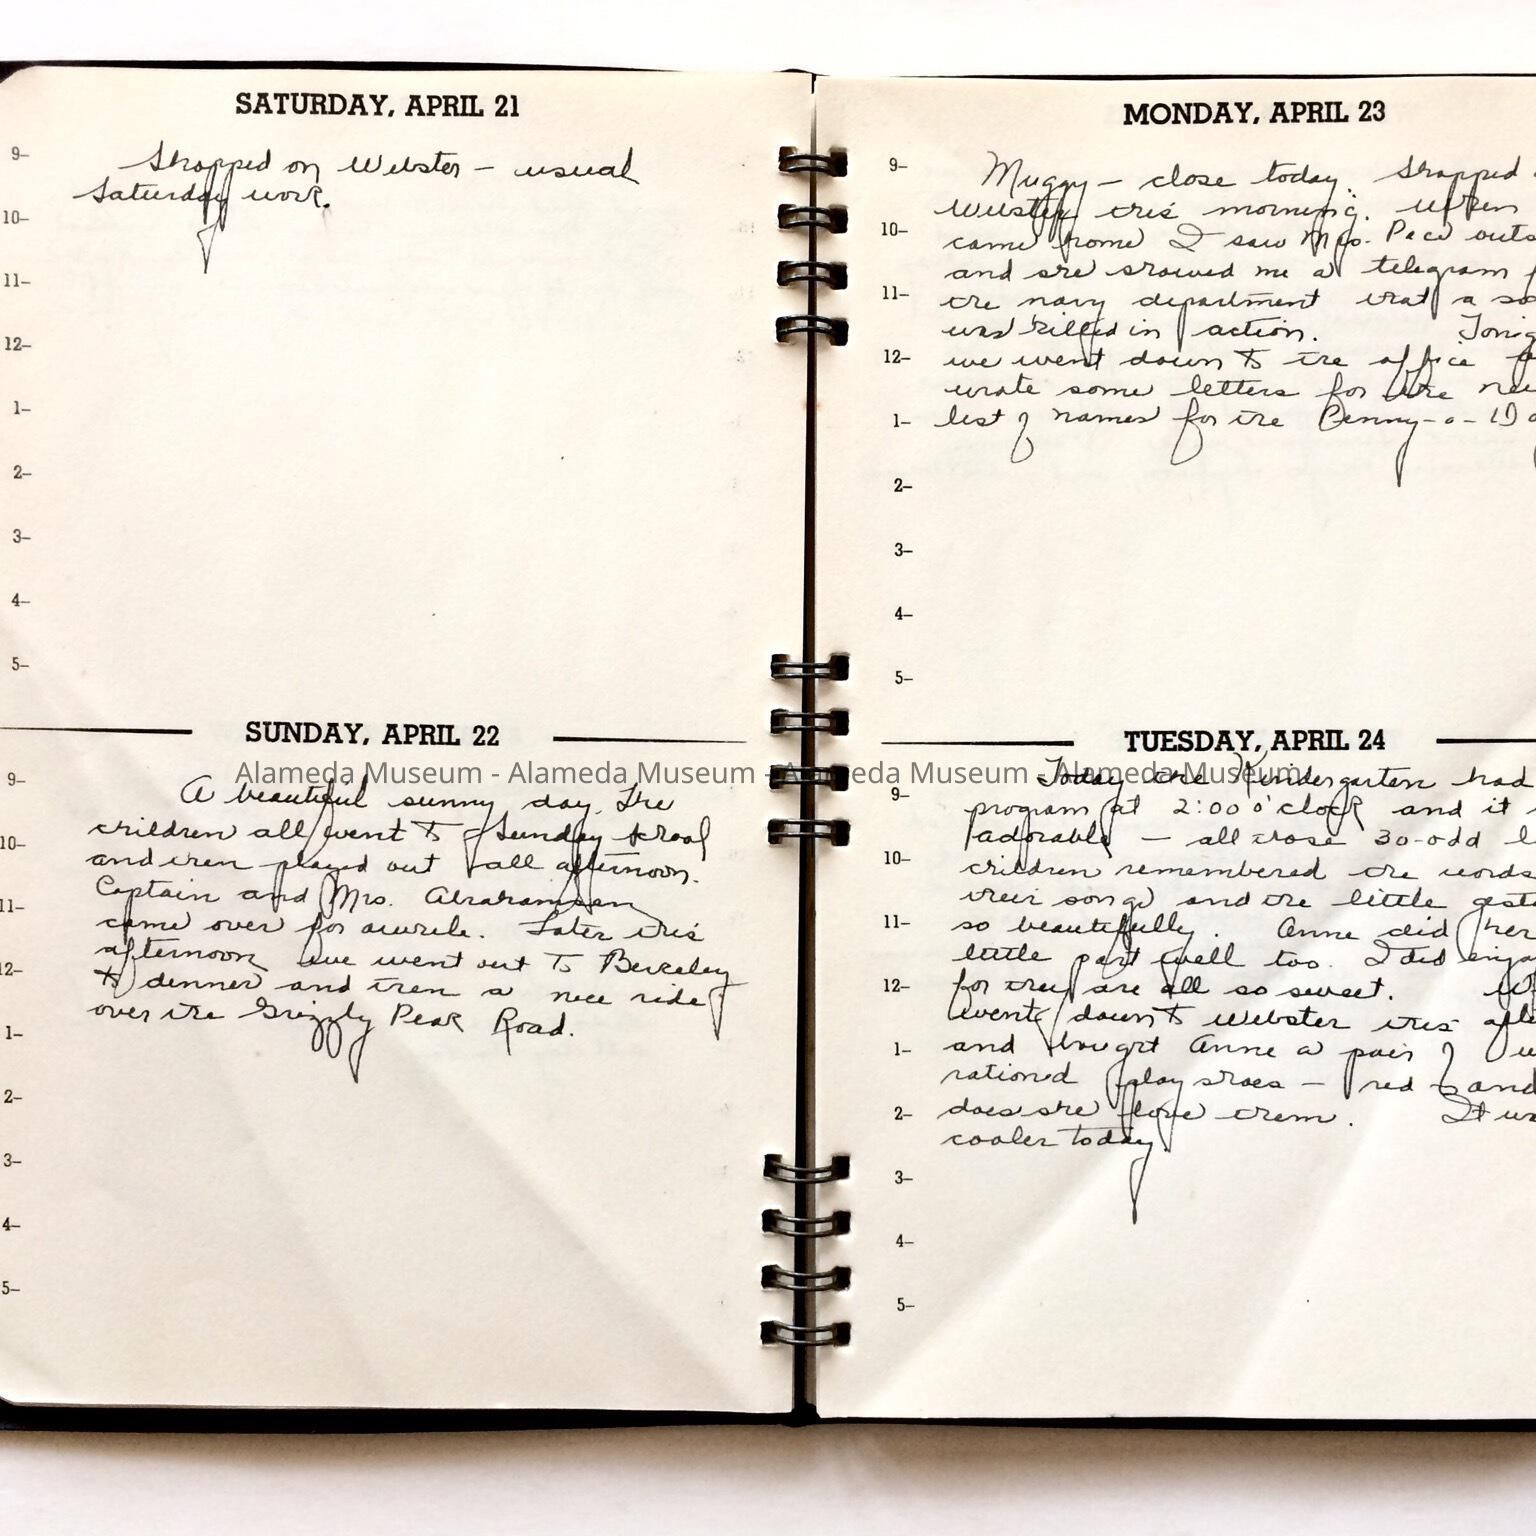 SATURDAY, APRIL 21
9-
Shopped on Webster - usual
Saturday work.
10-
11-
12-
1-
2-
3-
4-
5-
SUNDAY, APRIL 22
9-
A beautiful sunny day. The
children all went to Sunday School
10-
and then played out all afternoon.
Captain and Mrs. Abrahamsen
11-
came over for awhile. Later this
afternoon we went out to Berkeley
12-
to dinner and then a nice ride
over the Grizzly Peak Road.
1-
2-
3-
4-
5-
MONDAY, APRIL 23
9-
Muggy - close today. Shopped
Webster this morning. When
10-
came home I saw Mrs. Pace outs
and she showed me a telegram f
11-
the navy department that a so
was killed in action. Tonig
12-
we went down to the office
wrote some letters for the
1-
list of names for the Penny-a-Da
2-
3-
4-
5-
TUESDAY, APRIL 24
Today the Kindergarten had
9-
program at 2:00 o'clock and it
adorable - all those 30-odd l
10-
children remembered the words
their songs and the little gest
11-
so beautifully. Anne did her
little part well too. I did enjo
12-
for they are all so sweet.
went down to Webster this afte
1-
and bought Anne a pair of
rationed play shoes - red - and
2-
does she love them. It wa
cooler today.
3-
4-
5-
Alameda Museum - Alameda Museum - Alameda Museum - Alameda Museum